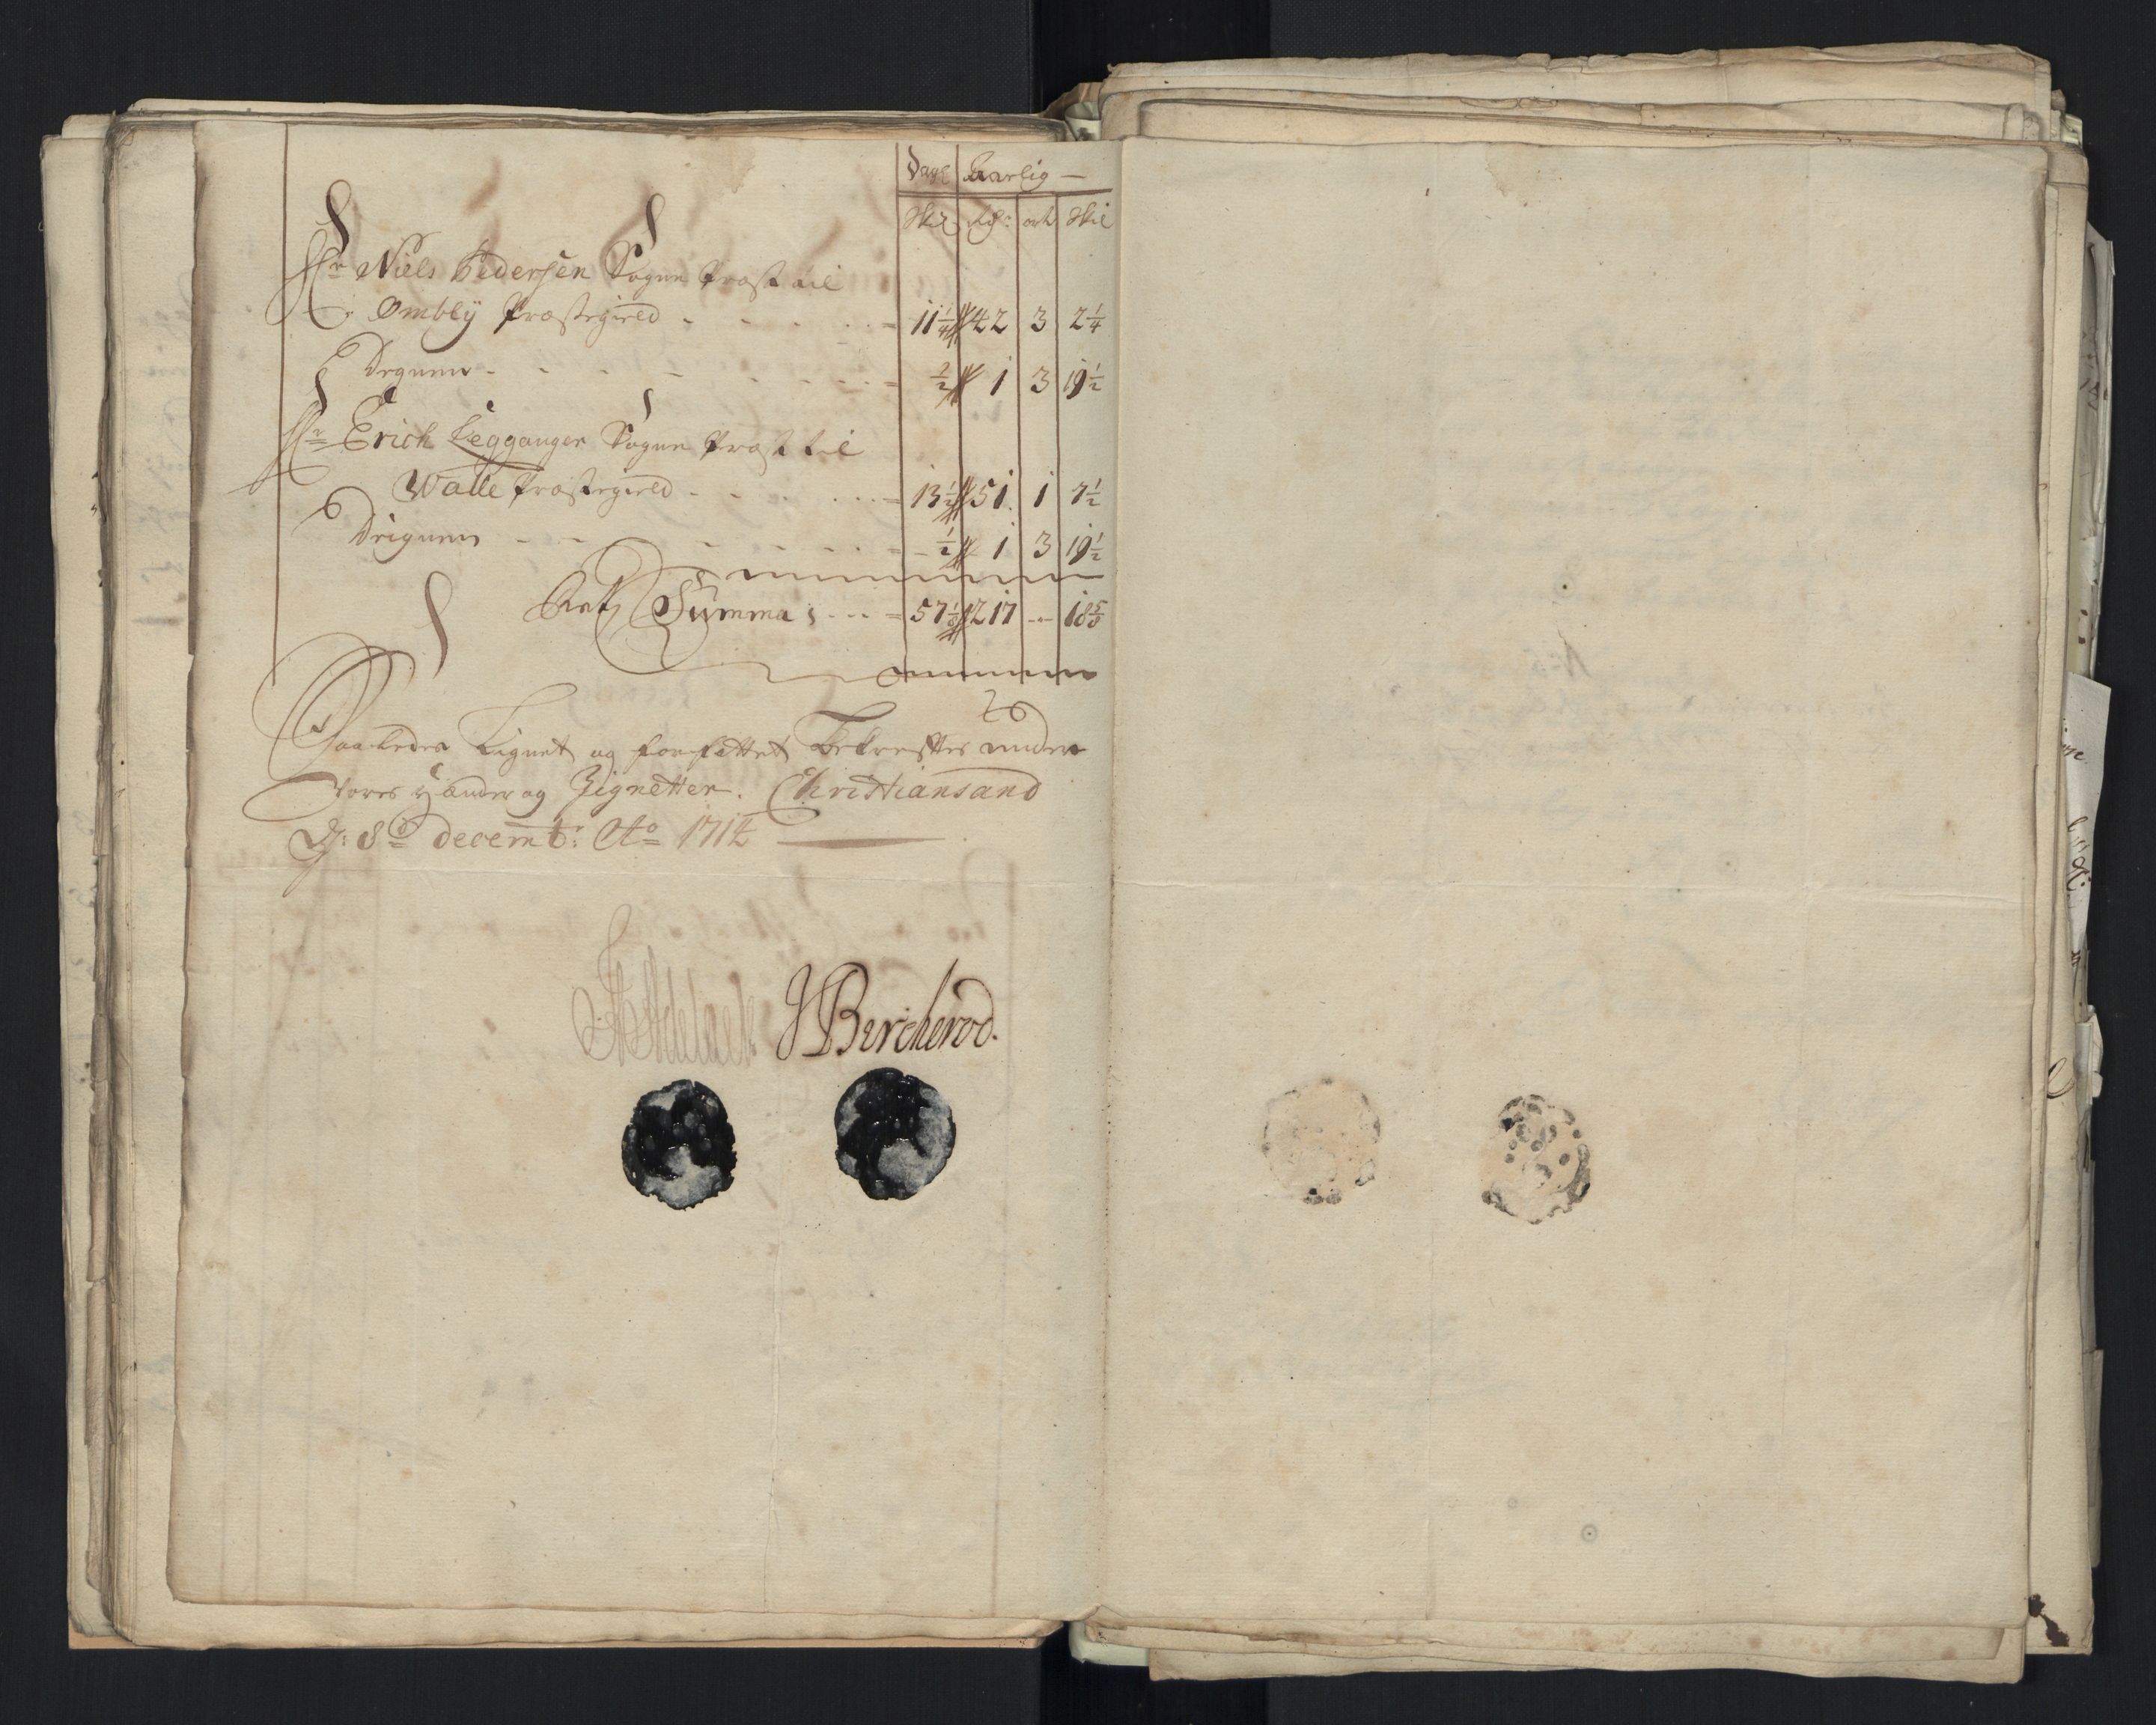 Dagl Aarlig —
Skil rdr: ort Skil
Hr Niels Pedersen Sogne Præst til
Ombly Præstegield - - - - 11 1/4 42 3 2 1/4
Degnen - - - - - 1/2 1 3 19 1/2
Hr Erich Legganger Sogne Præst til
Walle Præstegield - - - - 13 1/2 51. 1 7 1/2
Deignen - - - - - 1/2 1 3 19 1/2
Lat. Summa ; - - - 57 1/8 217 - - 18 5/8
Saaledes Lignet og forfattet Bekreftes under
Vores Hænder og Zignetter. Christiansand
D: 8de decembr: Ao 1714
JBircherod.